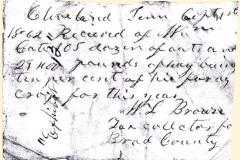 Cleveland Tenn Sept 1st
1862 Received of Wm
Cate 105 dozen of oats and
25 hundred pounds of hay being
ten per cent of his forage
crop for this year
W L Brown
Tax collector for
Brad County